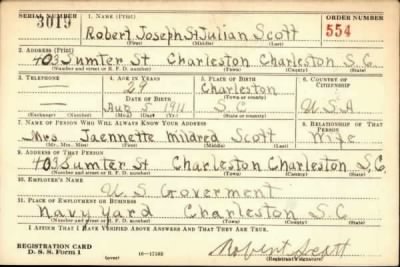 SERIAL NUMBER 1. NAME (Print) ORDER NUMBER
3019 Robert Joseph St Julian Scott 554
(First) (Middle) (Last)
2. ADDRESS (Print)
403 Sumter St Charleston Charleston S.C.
(Number and street or R. F. D. number) (Town) (County) (State)
3. TELEPHONE 4. AGE IN YEARS 5. PLACE OF BIRTH 6. COUNTRY OF CITIZENSHIP
— 29 Charleston
DATE OF BIRTH (Town or county)
— Aug 5 1911 S C U.S.A
(Exchange) (Number) (Mo.) (Day) (Yr.) (State or country)
7. NAME OF PERSON WHO WILL ALWAYS KNOW YOUR ADDRESS 8. RELATIONSHIP OF THAT PERSON
Mrs Jaennette Mildred Scott Wife
(Mr., Mrs., Miss) (First) (Middle) (Last)
9. ADDRESS OF THAT PERSON
403 Sumter St Charleston Charleston S.C.
(Number and street or R. F. D. number) (Town) (County) (State)
10. EMPLOYER'S NAME
U.S Goverment
11. PLACE OF EMPLOYMENT OR BUSINESS
Navy Yard Charleston S.C
(Number and street or R. F. D. number) (Town) (County) (State)
I AFFIRM THAT I HAVE VERIFIED ABOVE ANSWERS AND THAT THEY ARE TRUE.
REGISTRATION CARD Robert Scott
D. S. S. Form 1 (over) 16—17105 (Registrant's signature)